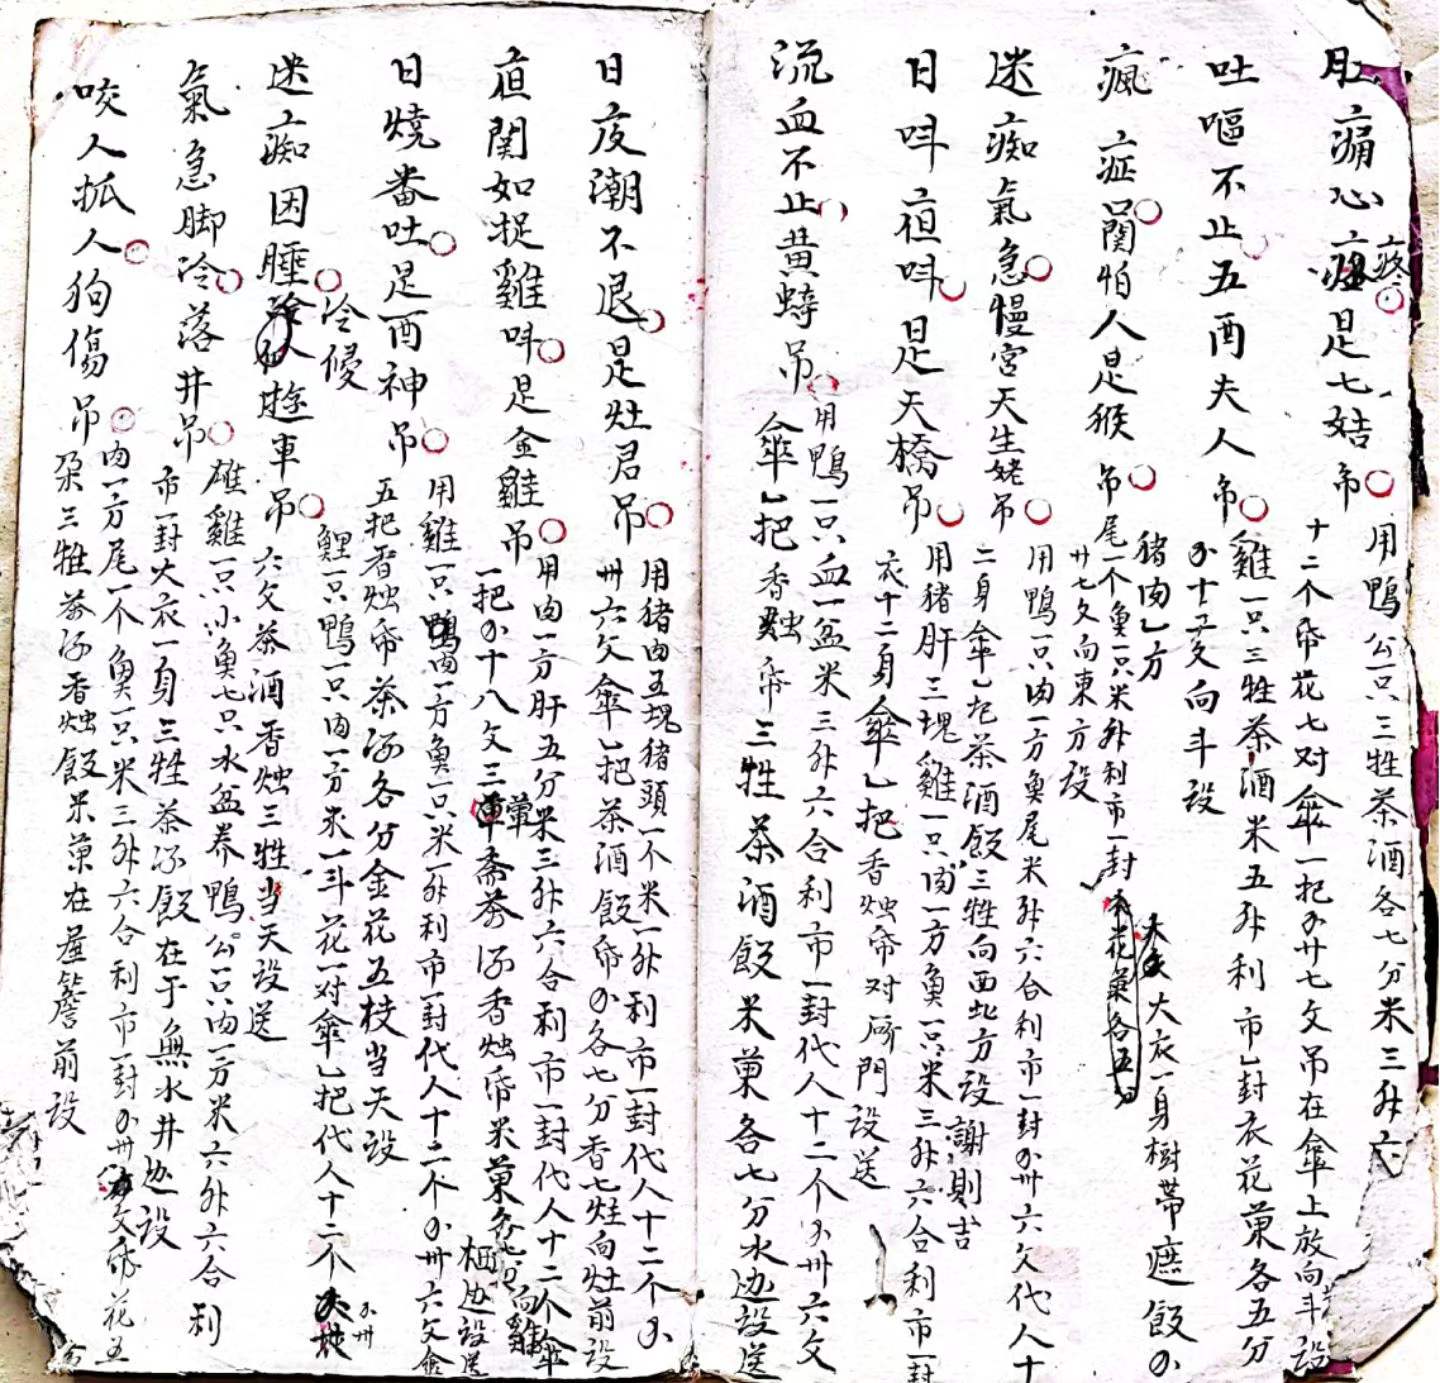 肚痛心疼是七姑吊
用鴨公一只三牲茶酒各七分米三升六
十二个帋花七对傘一把
廿七文吊在傘上放向斗設
吐嘔不止五酉夫人吊
雞一只三牲茶酒米五升利市乚封衣花菓各五分
十二文向斗設
瘋症鬧怕人是猴吊
猪肉乚方
尾一个魚一只米升利市一封
大衣一身樹帶遮飯
廿七文向東方設
迷痴氣急慢宮天生姥吊
用鴨一只肉一方魚尾米升六合利市一封卅六文代人十
二身傘乚把茶酒飯三牲向西北方設謝則吉
日呌夜呌是天橋吊
用猪肝三塊雞一只肉一方魚一只米三升六合利市一封
衣十二身傘乚把香烛帋对門設送
流血不止黄蜞吊
用鴨一只血一盆米三升六合利市一封代人十二个卅六文
傘乚把香烛帋三牲茶酒飯米菓各七分水边設送
日夜潮不退是灶君吊
用猪肉五塊猪頭一个米一升利市一封代人十二个
卅六文傘乚把茶酒飯帋各七分香七炷向灶前設
夜閙如捉雞呌是金雞吊
用肉一方肝五分米三升六合利市一封代人十二个傘
一把十八文三葷齋茶酒香烛帋米菓各七向雞栖边設送
日燒番吐是酉神吊
用雞一只鴨肉一方魚一只米一升利市一封代人十二个卅六文
五把香烛帋茶酒各分金花五枝当天設
迷痴因睡冷優遊車吊
鯉一只鴨一只肉一方米一斗花一对傘乚把代人十二个卅
六文茶酒香烛三牲当天設送
氣急脚冷落井吊
雄雞一只小魚七只水盆养鴨公一只肉一方米六升六合利
市一封大衣一身三牲茶酒飯在于無水井边設
咬人抓人狗傷吊
肉一方尾一个魚一只米三升六合利市一封卅文帋花五
朵三牲茶酒香烛飯米菓在屋簷前設